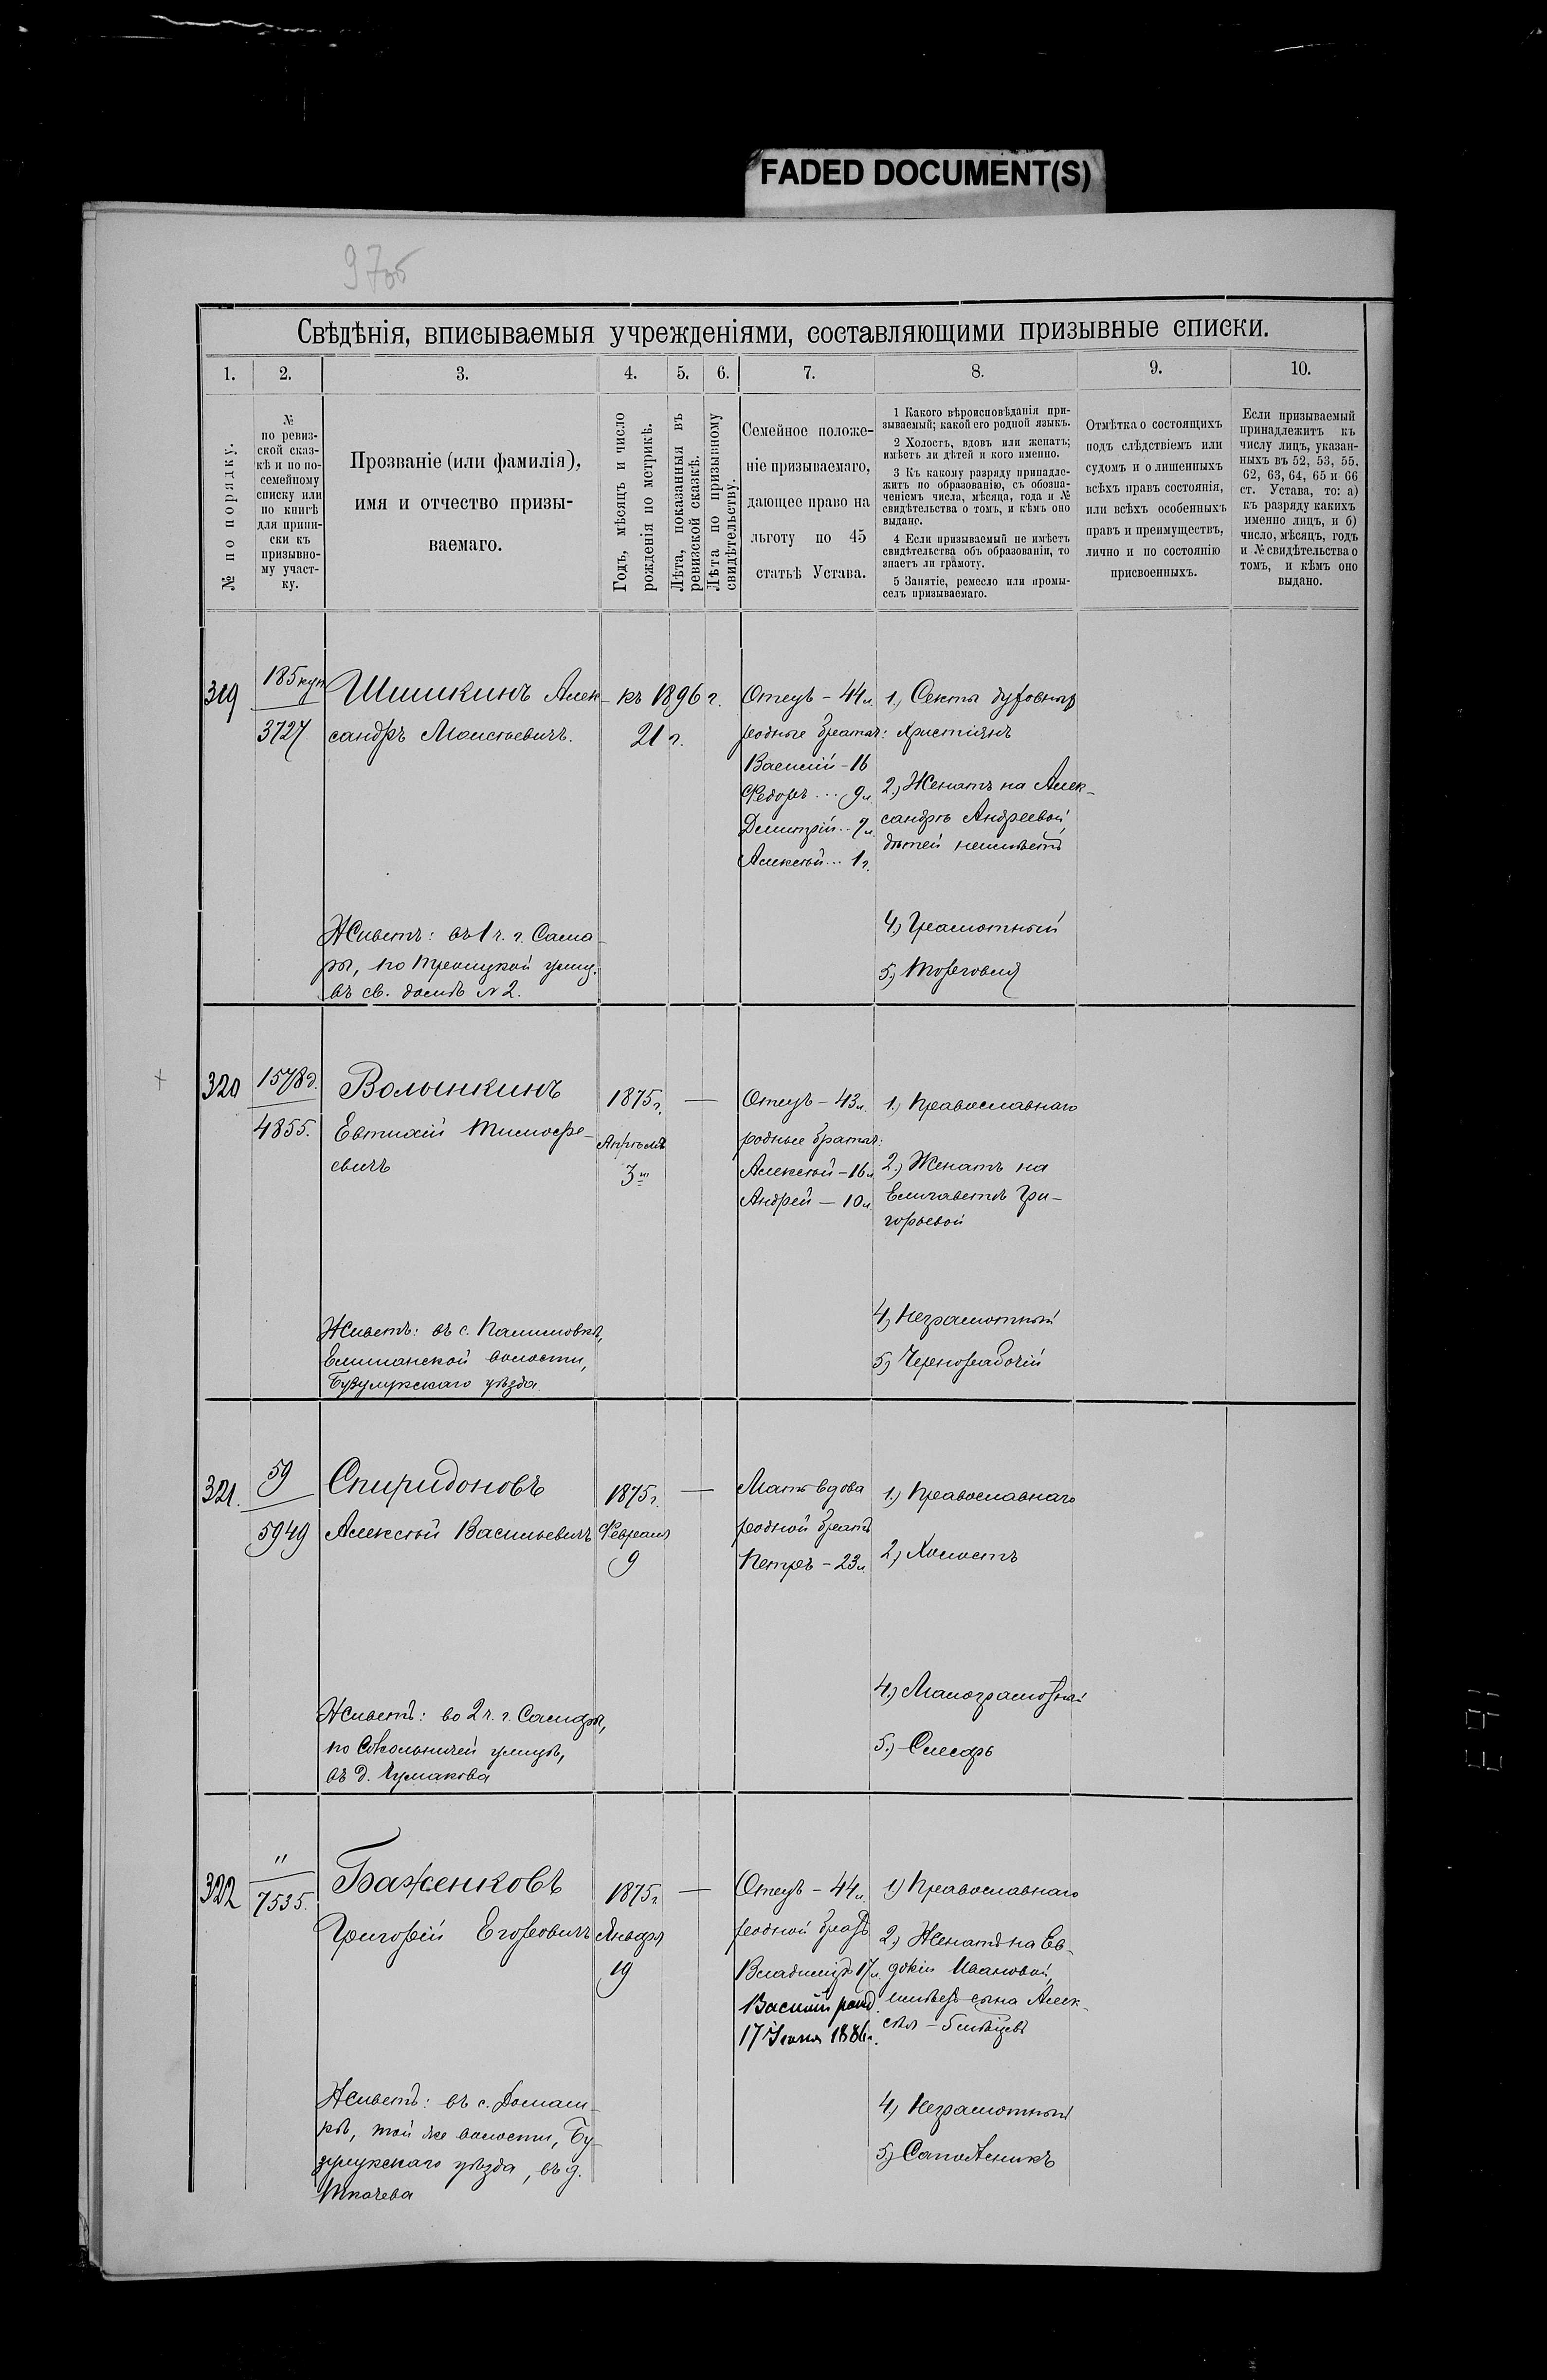 FADED DOCUMENT(S)
Свѣдѣнія, вписываемыя учрежденіями, составляющими призывные списки.
1. 2. 3. 4. 5. 6. 7. 8. 9. 10.
№ по порядку.
№
по ревиз-
ской сказ-
кѣ и по по-
семейному
списку или
по книгѣ
для припи-
ски къ
призывно-
му участ-
ку.
Прозваніе (или фамилія),
имя и отчество призы-
ваемаго.
Годъ, мѣсяцъ и число
рожденія по метрикѣ.
Лѣта, показанныя въ
ревизской сказкѣ.
Лѣта по призывному
свидѣтельству.
Семейное положе-
ніе призываемаго,
дающее право на
льготу по 45
статьѣ Устава.
1 Какого вѣроисповѣданія при-
зываемый; какой его родной языкъ.
2 Холостъ, вдовъ или женатъ;
имѣетъ ли дѣтей и кого именно.
3 Къ какому разряду принадле-
житъ по образованію, съ обозна-
ченіемъ числа, мѣсяца, года и №
свидѣтельства о томъ, и кѣмъ оно
выдано.
4 Если призываемый не имѣетъ
свидѣтельства объ образованіи, то
знаетъ ли грамоту.
5 Занятіе, ремесло или промы-
селъ призываемаго.
Отмѣтка о состоящихъ
подъ слѣдствіемъ или
судомъ и о лишенныхъ
всѣхъ правъ состоянія,
или всѣхъ особенныхъ
правъ и преимуществъ,
лично и по состоянію
присвоенныхъ.
Если призываемый
принадлежитъ къ
числу лицъ, указан-
ныхъ въ 52, 53, 55,
62, 63, 64, 65 и 66
ст. Устава, то: а)
къ разряду какихъ
именно лицъ, и б)
число, мѣсяцъ, годъ
и № свидѣтельства о
томъ, и кѣмъ оно
выдано.
319
185 куп
3727
Шишкинъ Алек-
сандръ Моисеевичъ.
къ 1896 г.
21 г.
Отецъ – 44 л.
родные братья:
Василій – 16
Федоръ ... 9 л.
Дмитрій .. 7 л.
Алексѣй ... 1 г.
1.) Секты духовныхъ
христіянъ
2.) Женатъ на Алек-
сандрѣ Андреевой,
дѣтей неимѣетъ
4.) Грамотный
5.) Торговля
Живетъ: въ 1 ч. г. Сама-
ры, по Троицкой улиц.
въ св. домѣ № 2.
320
1578 д.
4855.
Волынкинъ
Евтихій Тимофе-
евичъ
1875 г.
Апрѣля
3 го
Отецъ – 43 л.
родные братья:
Алексѣй – 16 л
Андрей – 10 л.
1.) Православнаго
2.) Женатъ на
Елизаветѣ Гри-
горьевой
4.) Неграмотный
5.) Чернорабочій
Живетъ: въ с. Палимовкѣ,
Елшанской волости,
Бузулукскаго уѣзда
321.
59
5949
Спиридоновъ
Алексѣй Васильевичъ
1875 г.
Февраля
9
Мать вдова
родной братъ
Петръ – 23 л.
1.) Православнаго
2.) Холостъ
4.) Малограмотный
5.) Слесарь
Живетъ: во 2 ч. г. Самары,
по Сокольничей улицѣ,
въ д. Чумакова
322
"
7535.
Баженковъ
Григорій Егоровичъ
1875 г.
Января
19
Отецъ – 44 л.
родной братъ
Владиміръ 17 л.
Василій ронд.
17 Іюня 1886 г.
1) Православнаго
2.) Женатъ на Ев-
докіи Ивановой,
имѣетъ сына Алек-
сѣя – 5 мѣсяцевъ
4.) Неграмотный
5.) Сапожникъ
Живетъ: въ с. Домаш-
кѣ, той же волости, Бу-
зулукскаго уѣзда, въ д.
Ткачева